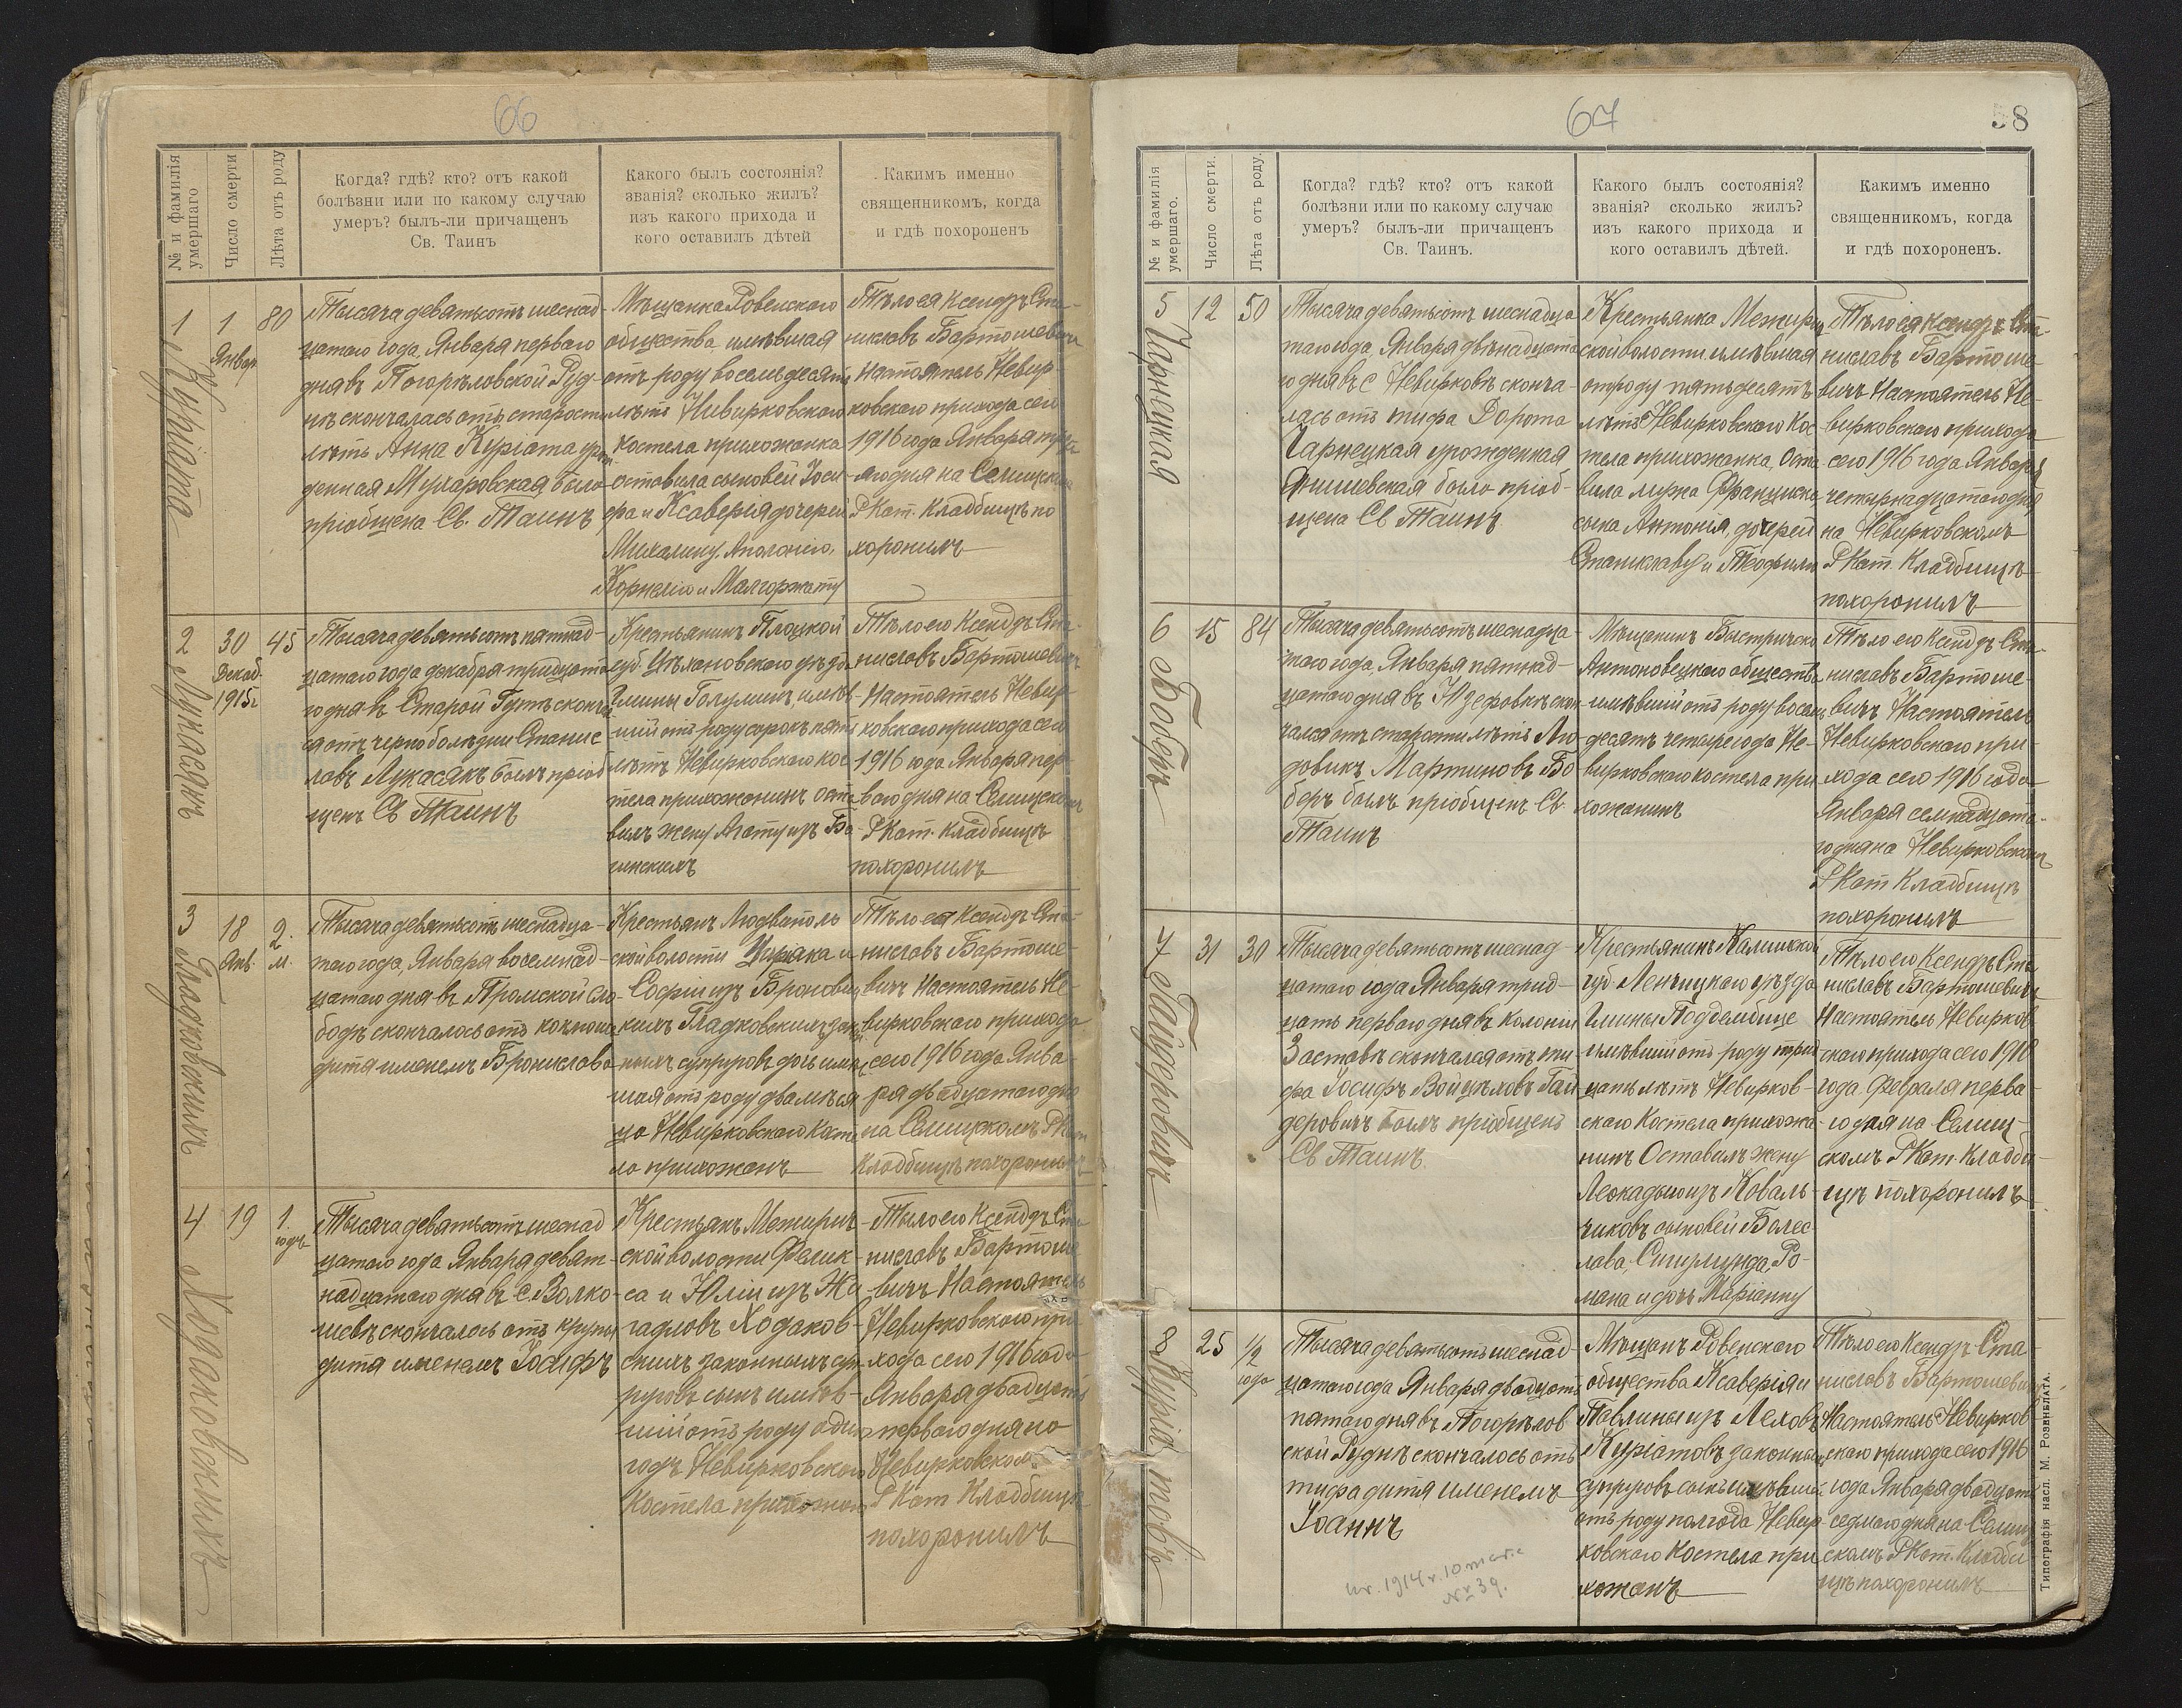 66
№ и фамилія умершаго
Число смерти
Лѣта отъ роду
Когда? гдѣ? кто? отъ какой
болѣзни или по какому случаю
умеръ? былъ-ли причащенъ
Св. Таинъ
Какого былъ состоянія?
званія? сколько жилъ?
изъ какого прихода и
кого оставилъ дѣтей
Какимъ именно
священникомъ, когда
и гдѣ похороненъ
1 Куріата
1
Январ
80
Тысяча девятьсотъ шеснад-
цатаго года, Января перваго
дня въ Погорѣловской Руд-
нѣ скончалась отъ старости
лѣтъ Анна Куріата урож
денная Муларовская была
пріобщена Св. Таинъ
Мѣщанка Ровенскаго
общества имѣвшая
отъ роду восемьдесятъ
лѣтъ Невирковскаго
костела прихожанка
оставила сыновей Іоси-
фа и Ксаверія дочерей
Михалину, Аполонію,
Корнелію и Малгоржату
Тѣло ея Ксендзъ Ста-
ниславъ Бартошевичъ
Настоятель Невир-
ковскаго прихода сего
1916 года Января треть
яго дня на Селищском
Р Кат. Кладбищѣ по
хоронилъ
2 Лукасякъ
30
Декаб.
1915г
45
Тысяча девятьсотъ пятнад-
цатаго года декабря тридцата
го дня въ Старой Гутѣ сконча
ся отъ чернобользни Станис
лавъ Лукасякъ былъ пріоб
щенъ Св Таинъ
Крестьянинъ Плоцкой
губ. Цѣхановскаго уѣзда
Гмины Голуминъ, имѣв
шій отъ роду сорокъ пять
лѣтъ Невирковскаго кос
тела прихожанинъ оста
вилъ жену Агату изъ Ба-
гинскихъ
Тѣло его Ксендзъ Ста-
ниславъ Бартошевичъ
Настоятель Невир
ковскаго прихода сего
1916 года Января пер
ваго дня на Селищском
Р Кат. кладбищѣ
похоронилъ
3 Гладковскихъ
18
Янв.
2.
м.
Тысяча девятьсотъ шеснадца-
таго года, Января восемнад-
цатаго дня въ Промской Сло-
бодѣ скончалось отъ коклюша
дитя именемъ Бронислава
Крестьянъ Людвиполь
ской волости Циріака и
Софіи изъ Броновиц
кихъ Гладковскихъ закон
ныхъ супруговъ дочь имѣв
шая отъ роду два мѣся
ца Невирковскаго Косте
ла прихожанъ
Тѣло ея Ксендзъ Ста-
ниславъ Бартоше-
вичъ Настоятель Не-
вирковскаго прихода
сего 1916 года Янва-
ря двадцатаго дня
на Селищскомъ Р Кат
Кладбищѣ похоронилъ
4 Ходаковскихъ
19
1.
годъ
Тысяча девятьсотъ шеснад
цатаго года Января девят-
надцатаго дня въ с. Волко-
шевѣ скончалось отъ крупы
дитя именемъ Іосифъ
Крестьянъ Межирич
ской волости Феликса
са и Юліи изъ Жа
гадловъ Ходаков-
скихъ законныхъ суп
руговъ сынъ имѣв-
шій отъ роду одинъ
годъ Невирковскаго
Костела прихожан
Тѣло его Ксендзъ Ста
ниславъ Бартоше
вичъ Настоятель
Невирковскаго при
хода сего 1916 года
Января двадцать
перваго дня на
Невирковском
Р Кат Кладбищѣ
похоронилъ
67
58
№ и фамилія умершаго.
Число смерти.
Лѣта отъ роду.
Когда? гдѣ? кто? отъ какой
болѣзни или по какому случаю
умеръ? былъ-ли причащенъ
Св. Таинъ.
Какого былъ состоянія?
званія? сколько жилъ?
изъ какого прихода и
кого оставилъ дѣтей.
Какимъ именно
священникомъ, когда
и гдѣ похороненъ.
5 Чарнецкая
12
50
Тысяча девятьсотъ шеснадца
таго года Января двѣнадцата
го дня въ с Невирковѣ сконча-
лась отъ тифа Дорота
Чарнецкая урожденная
Янишевская была пріоб-
щена Св Таинъ
Крестьянка Межирич
ской волости имѣвшая
отроду пятьдесятъ
лѣтъ Невирковскаго Кос
тела прихожанка, Оста
вила мужа Франциска
сына Антонія, дочерей
Станиславу и Теофилю
Тѣло ея Ксендзъ Ста-
ниславъ Бартоше
вичъ Настоятель Не-
вирковскаго прихода
сего 1916 года Января
четырнадцатаго дня
на Невирковскомъ
Р Кат. Кладбищѣ
похоронилъ
6 Боберъ
15
84
Тысяча девятьсотъ шеснадца-
таго года, Января пятнад-
цатаго дня въ Юзефовкѣ скон
чался отъ старости лѣтъ Лю
довикъ Мартиновъ Бо
беръ былъ пріобщенъ Св
Таинъ
Мѣщанинъ Быстричско
Антоновецкаго общества
имѣвшій отъ роду восемь
десятъ четыре года Не-
вирковскаго костела при
хожанинъ
Тѣло его Ксендзъ Ста-
ниславъ Бартоше-
вичъ Настоятель
Невирковскаго при-
хода сего 1916 года
Января семнадцата-
го дня на Невирковском
Р Кат Кладбищѣ
похоронилъ
7 Гайдеровичъ
31
30
Тысяча девятьсотъ шеснад
цатаго года Января трид-
цать перваго дня въ колоніи
Заставѣ скончался отъ ти
фа Іосифъ Войцѣховъ Гай
деровичъ былъ пріобщенъ
Св Таинъ.
Крестьянинъ Калишской
губ. Ленчицкаго уѣзда
Гмины Поддембице
имѣвшій отъ роду трид
цать лѣтъ Невирков-
скаго Костела прихожа
нинъ Оставилъ жену
Леокадью изъ Коваль-
чиковъ сыновей Болес
лава, Сигизмунда, Ро-
мана и дочь Маріанну
Тѣло его Ксендзъ Ста
ниславъ Бартошевичъ
Настоятель Невирков
скаго прихода сего 1916
года Февраля перва
го дня на Селищ-
скомъ Р Кат. Кладби-
щѣ похоронилъ
8 Куріатовъ
25
1/2
года
Тысяча девятьсотъ шеснад-
цатаго года Января двадцать
пятаго дня въ Погорѣлов
ской Руднѣ скончалось отъ
тифа дитя именемъ
Іоаннъ
Мѣщанъ Ровенскаго
общества Ксаверія и
Павлины изъ Леховъ
Куріатовъ законных
супруговъ сынъ имѣвшій
отъ роду полгода Невир-
ковскаго Костела при
хожанъ
Тѣло его Ксендзъ Ста-
ниславъ Бартошевичъ
Настоятель Невирков
скаго прихода сего 1916
года Января двадцать
седмаго дня на Селищ
скомъ Р Кат. Кладби
щѣ похоронилъ
ur. 1914 r. 10 marca
№ 39.
Типографія насл. М. Розенблата.